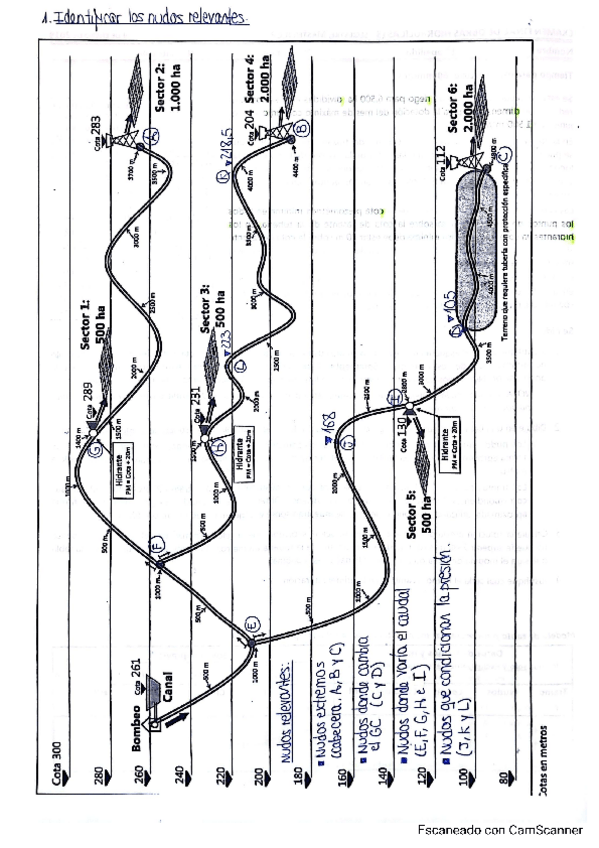 1. Identificar los nudos relevantes.
Sector 2:
1.000 ha
Cota 283
A
3700 m
3500 m
3000 m
2500 m
2000 m
Sector 1:
500 ha
Cota 289
1400 m
1500 m
G
Hidrante
PM = Cota + 20m
500 m
1000 m
F
500 m
Sector 4:
2.000 ha
Cota 204
B
4400 m
K
218,5
4000 m
3500 m
3000 m
2500 m
2000 m
Sector 3:
500 ha
Cota 231
223
L
H
Hidrante
PM = Cota + 20m
1000 m
500 m
Sector 6:
2.000 ha
Cota 112
C
4500 m
4000 m
Terreno que requiere tubería con protección específica
D
105
3500 m
3000 m
I
Cota 130
Hidrante
PM = Cota + 20m
Sector 5:
500 ha
168
2500 m
2000 m
1500 m
1000 m
500 m
E
1000 m
500 m
Bombeo
Cota 261
Canal
Nudos relevantes:
Nudos extremos
(cabecera, A, B y C)
Nudos donde cambia
el GC (C y D)
Nudos donde varía el caudal
(E, F, G, H e I)
Nudos que condicionan la presión.
(J, K y L)
Cota 300
280
260
240
220
200
180
160
140
120
100
80
Cotas en metros
Escaneado con CamScanner